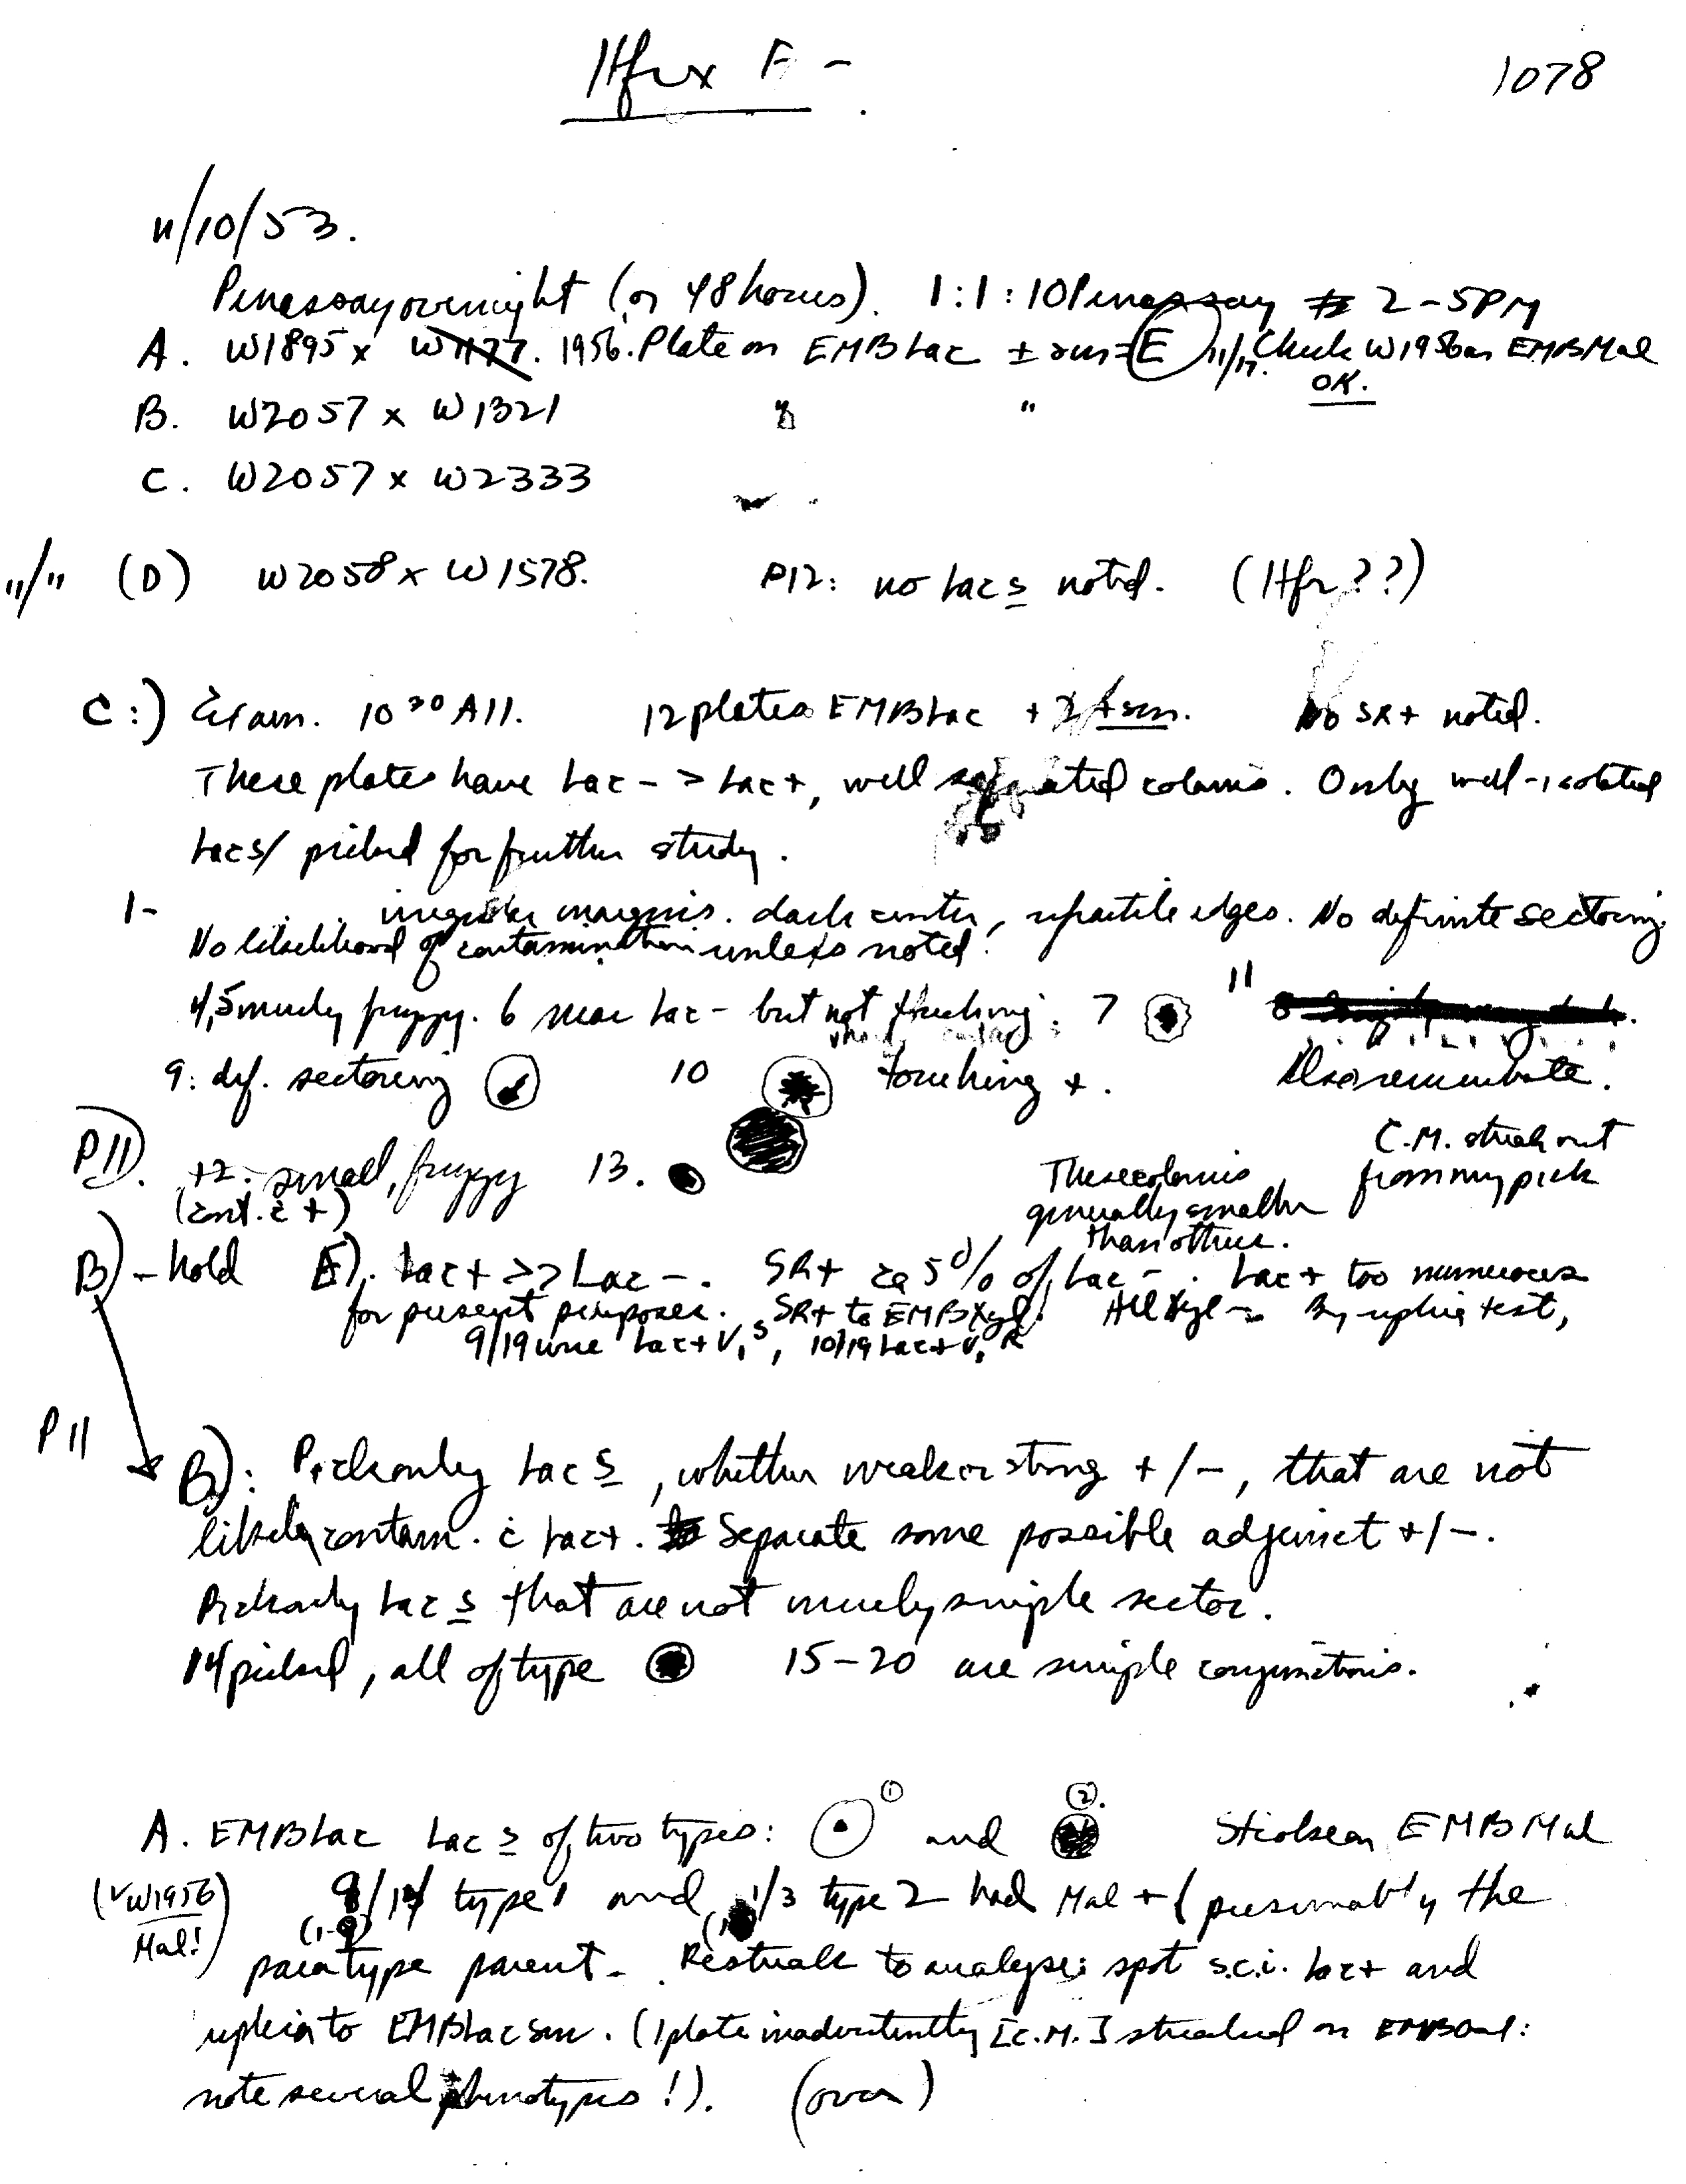 Hfr x F -
1078
11/10/53.
Penassay overnight (or 48 hours). 1:1:10 Penassay 2-5PM
A. W1895 x W1177. 1956. Plate on EMB Lac ± sm = E 11/17. Check W1956 on EMB Mal
OK.
B. W2057 x W1321 " "
C. W2057 x W2333
"/" (D) W2058 x W1578. P12: no Lac s noted. (Hfr??)
C:) Exam. 10 30 A11. 12 plates EMB Lac + sm. No SR+ noted.
These plates have Lac - > Lac+, well separated colonies. Only well-isolated
Lac s/ picked for further study.
1- irregular margins. dark center, refractile edges. No definite sectoring.
No likelihood of contamination unless noted.
4,5 merely fuzzy. 6 near Lac - but not touching. 7 11 8
9: def. sectoring 10 touching +.
C.M. streak out
from my pick
P11. 12. small, fuzzy 13.
(cont. c +)
These colonies
generally smaller
than others.
B) - hold E). Lac+ >> Lac -. SR+ ca 5% of Lac -. Lac+ too numerous
for present purposes. SR+ to EMB Xyl. All Xyl -. By replica test,
9/19 were Lac+ V1 S, 10/19 Lac+ V1 R
P11
B): Pick only Lac s, whether weak or strong +/-, that are not
likely contam. c Lac+. Separate some possible adjunct +/-.
Pick only Lac s that are not merely simple sector.
14 picked, all of type 15-20 are simple conjunctions.
A. EMB Lac Lac s of two types: ① and ②. Streaks on EMB Mal
(v W1956
Mal!)
9/14 type 1 and 1/3 type 2 had Mal + (presumably the
(1-9)
paratype parent. Restreak to analyse: spot s.c.i. Lac+ and
replica to EMB Lac sm. (1 plate inadvertently [C.M.] streaked on EMB Gal:
note several phenotypes!). (over)